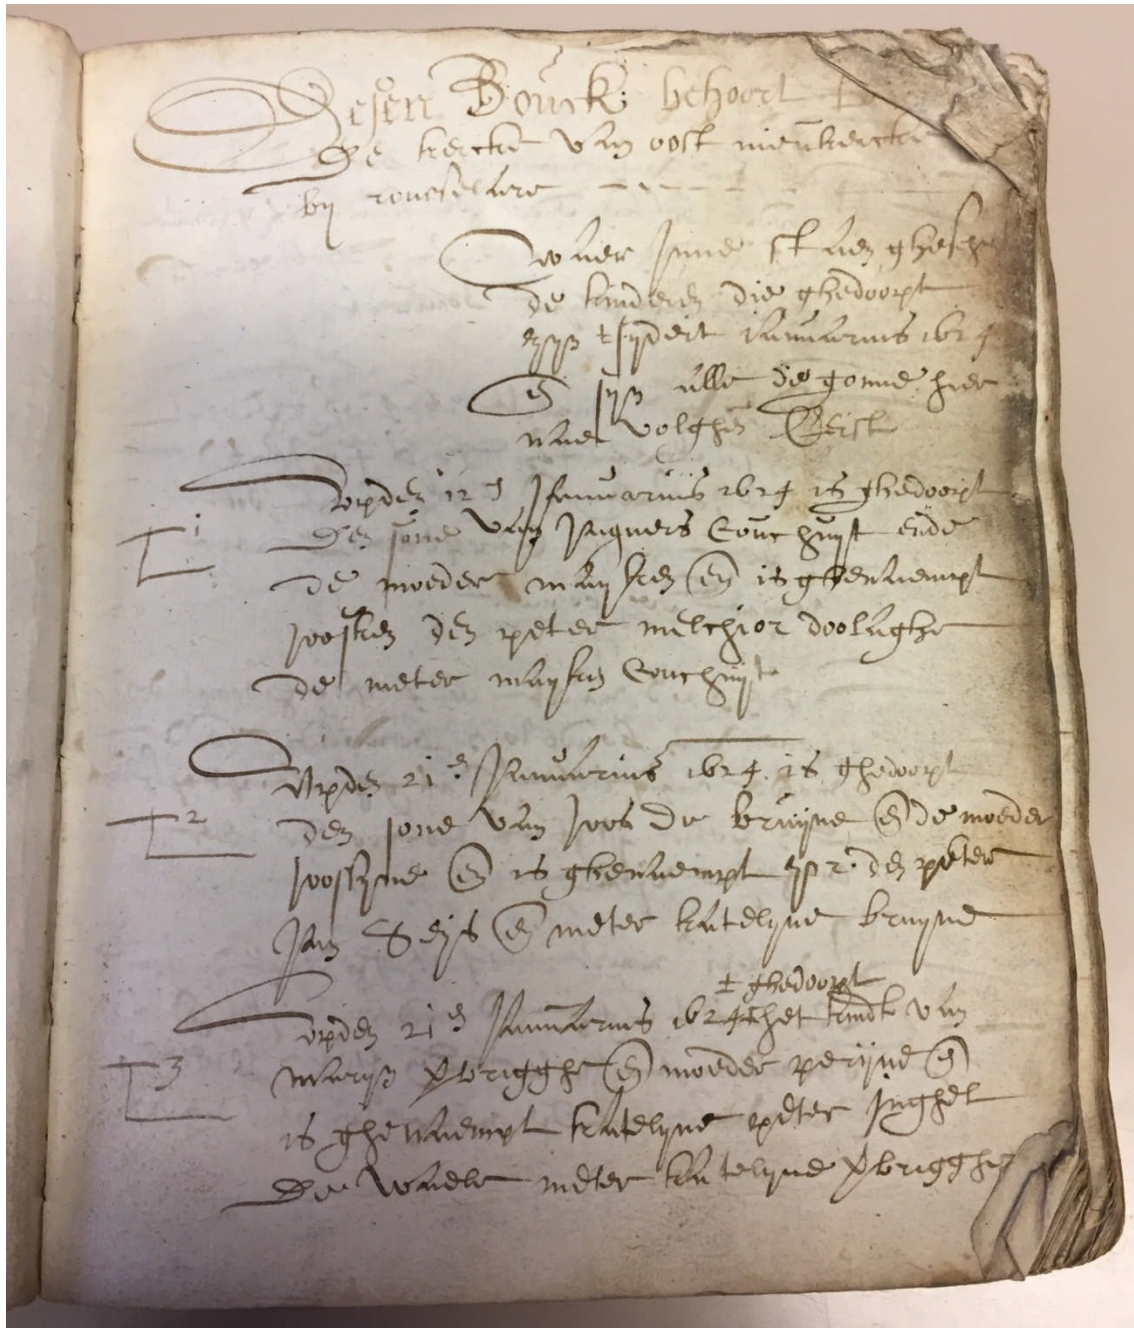 Desen Bouck behoort
De kercke van oost nieukercke
by rousselare
Waer Inne staen ghesch
de kinderen die ghedoopt
zyn tsydert Januarius 1624
en syn alle de gonne hier
naer volghen Eerst
1 Opden 12 e Januarius 1624 is ghedoopt
Den sone van Jaques Couchuyt ende
de moeder mayken en is ghenaempt
Joosken den peter melchior doolaghe
de meter mayken Couchuyt
2 Upden 21 e Januarius 1624 is ghedoopt
den sone van Joos de bruyne en de moeder
Joossyne en is ghenaempt den peter
Jan Seys en meter katelyne bruyne
± ghedoopt
3 opden 21 e Januarius 1624 ± het kindt van
maryn vbrigghe en moeder peryne en
is ghenaempt katelyne peter Inghel
De waele meter katelyne vbrigghe